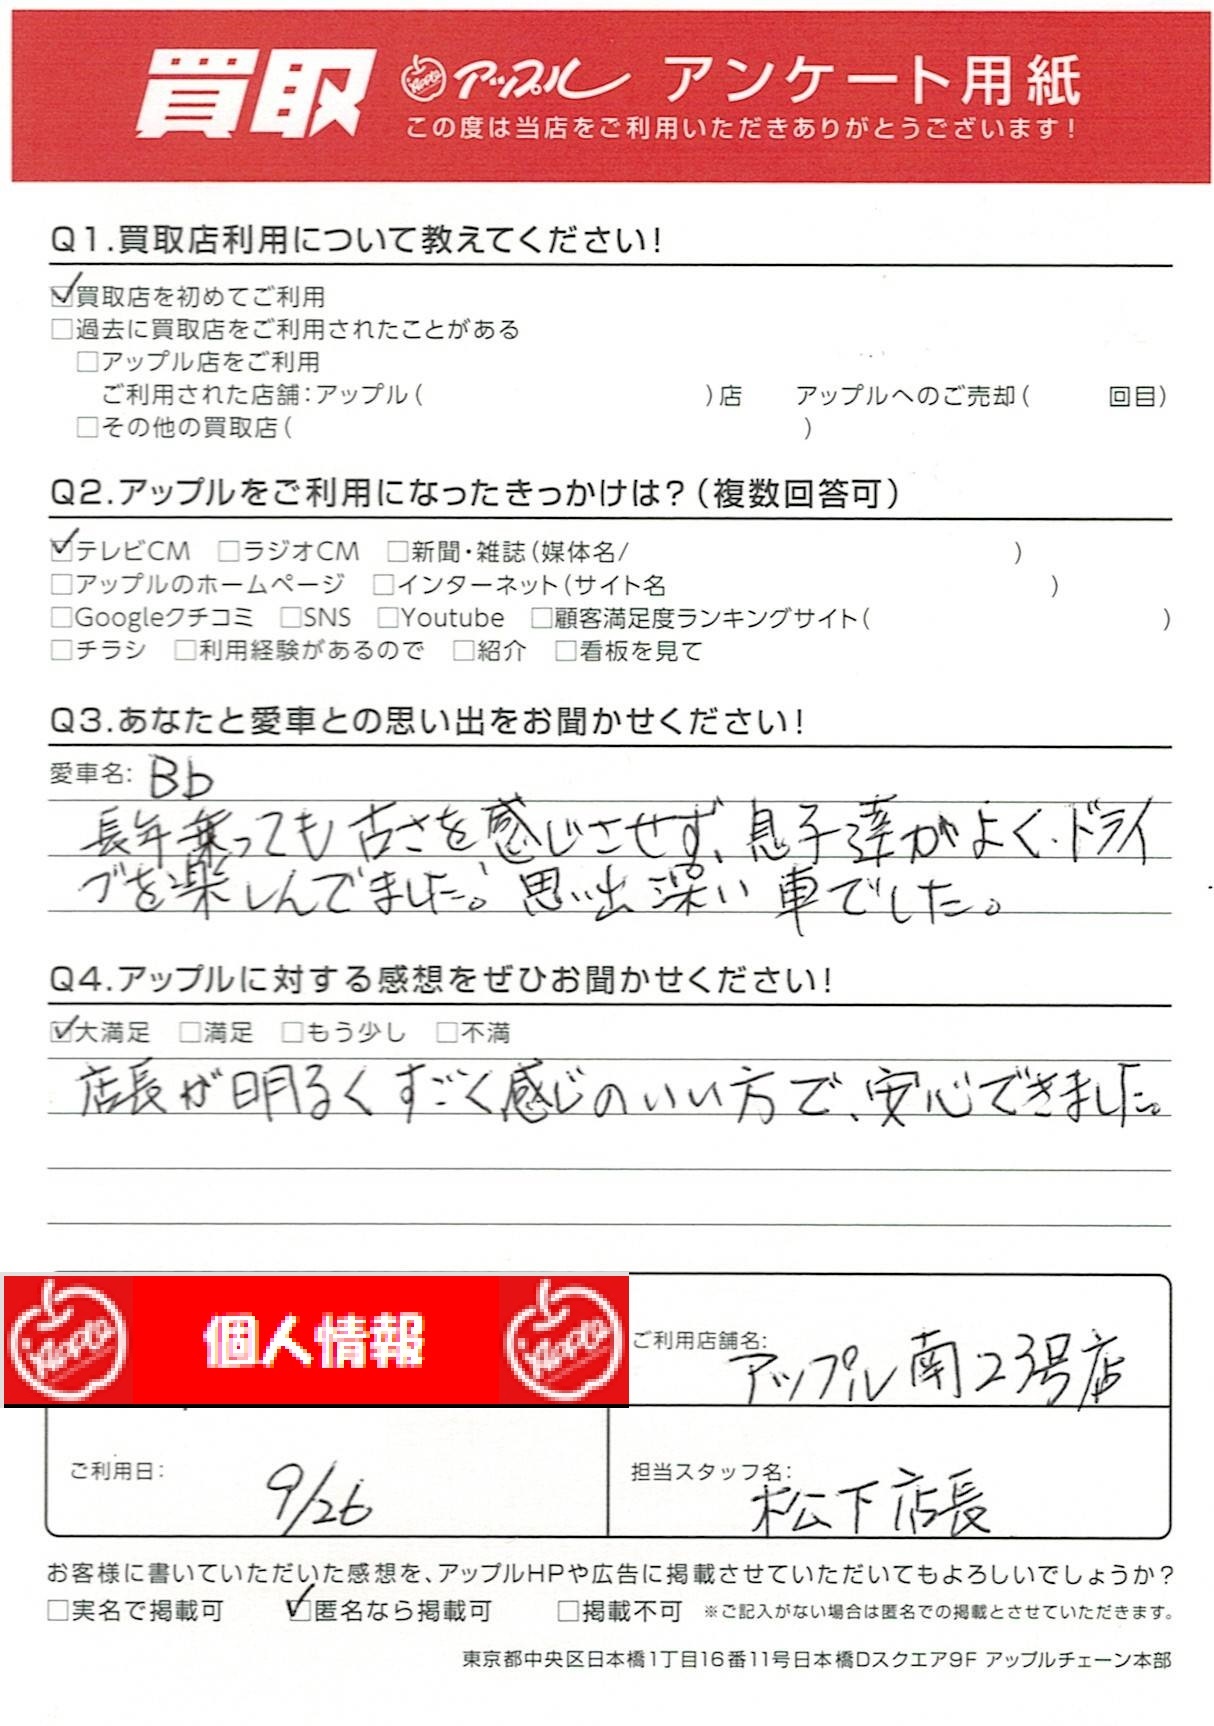 買取 Apple アップル アンケート用紙
この度は当店をご利用いただきありがとうございます!
Q1.買取店利用について教えてください!
☑買取店を初めてご利用
□過去に買取店をご利用されたことがある
□アップル店をご利用
ご利用された店舗:アップル( )店 アップルへのご売却( 回目)
□その他の買取店( )
Q2.アップルをご利用になったきっかけは?(複数回答可)
☑テレビCM □ラジオCM □新聞・雑誌(媒体名/ )
□アップルのホームページ □インターネット(サイト名 )
□Googleクチコミ □SNS □Youtube □顧客満足度ランキングサイト( )
□チラシ □利用経験があるので □紹介 □看板を見て
Q3.あなたと愛車との思い出をお聞かせください!
愛車名: Bb
長年乗っても古さを感じさせず、息子達がよく、ドライ
ブを楽しんでました。思い出深い車でした。
Q4.アップルに対する感想をぜひお聞かせください!
☑大満足 □満足 □もう少し □不満
店長が明るくすごく感じのいい方で、安心できました。
Apple 個人情報 Apple
ご利用店舗名: アップル南23号店
ご利用日: 9/26
担当スタッフ名: 松下店長
お客様に書いていただいた感想を、アップルHPや広告に掲載させていただいてもよろしいでしょうか?
□実名で掲載可 ☑匿名なら掲載可 □掲載不可 ※ご記入がない場合は匿名での掲載とさせていただきます。
東京都中央区日本橋1丁目16番11号日本橋Dスクエア9F アップルチェーン本部